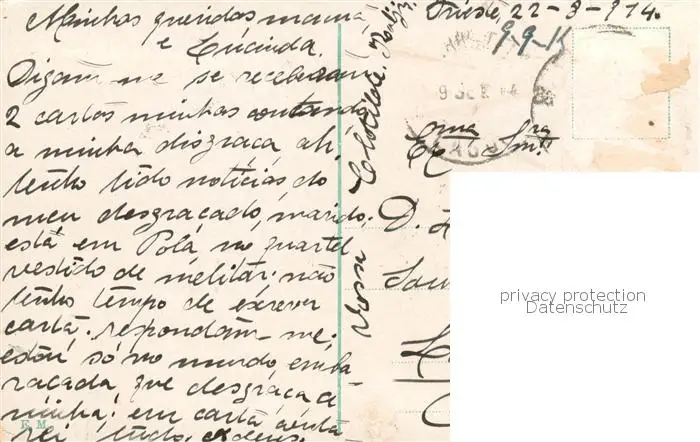 Minhas queridas mamã
e Lucinda.
Digam me se receberam
2 cartas minhas contando
a minha disgraça ah!
tenho tido noticias do
meu desgraçado, marido.
está em Pola no quartel
vestido de militar. não
tenho tempo de escrever
carta. respondam-me,
estou só no mundo, emba
raçada que desgraça a
minha! em carta conta
rei tudo. adeus.
Vossa Clotilde
Trieste, 22-8-914.
9-9-14
Exma Sra
D.
E. M.
privacy protection
Datenschutz